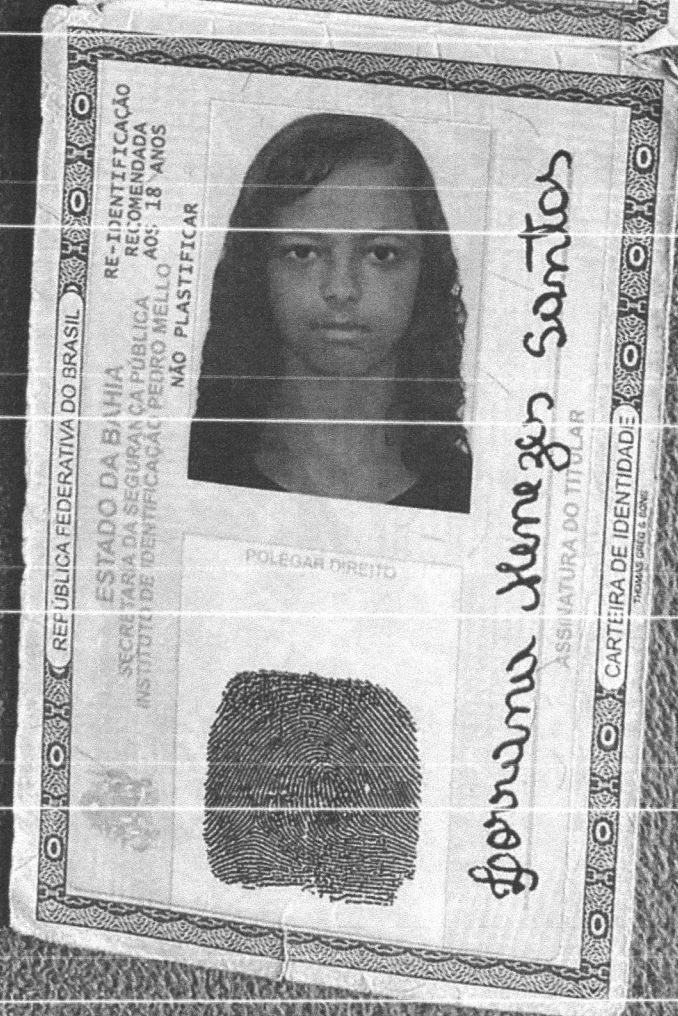 REPÚBLICA FEDERATIVA DO BRASIL
ESTADO DA BAHIA
SECRETARIA DA SEGURANÇA PÚBLICA
INSTITUTO DE IDENTIFICAÇÃO PEDRO MELLO
RE-IDENTIFICAÇÃO
RECOMENDADA
AOS 18 ANOS
NÃO PLASTIFICAR
POLEGAR DIREITO
Menezes Santos
ASSINATURA DO TITULAR
CARTEIRA DE IDENTIDADE
THOMAS GREG & SONS